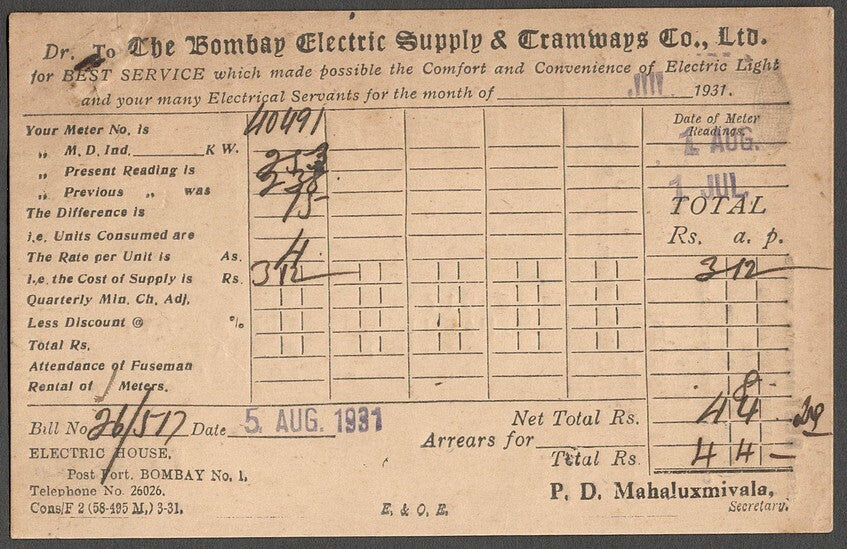 Dr. To The Bombay Electric Supply & Tramways Co., Ltd.
for BEST SERVICE which made possible the Comfort and Convenience of Electric Light
and your many Electrical Servants for the month of 1931.
Your Meter No. is 40491
Date of Meter Readings.
„ M. D. Ind. K W.
1 AUG.
„ Present Reading is
„ Previous „ was
1 JUL
The Difference is 15
TOTAL
i.e. Units Consumed are
Rs. a. p.
The Rate per Unit is As. 4
I.e. the Cost of Supply is Rs. 3 12 3 12
Quarterly Min. Ch. Adj.
Less Discount @ %
Total Rs.
Attendance of Fuseman
Rental of / Meters. 8
Bill No. 26/517 Date 5 AUG. 1931
Net Total Rs. 4 4
Arrears for
ELECTRIC HOUSE,
Total Rs 4 4 —
Post Fort, BOMBAY No. 1,
Telephone No. 26026.
P. D. Mahaluxmivala,
Cons/F 2 (58-495 M.) 3-31.
E. & O. E.
Secretary.